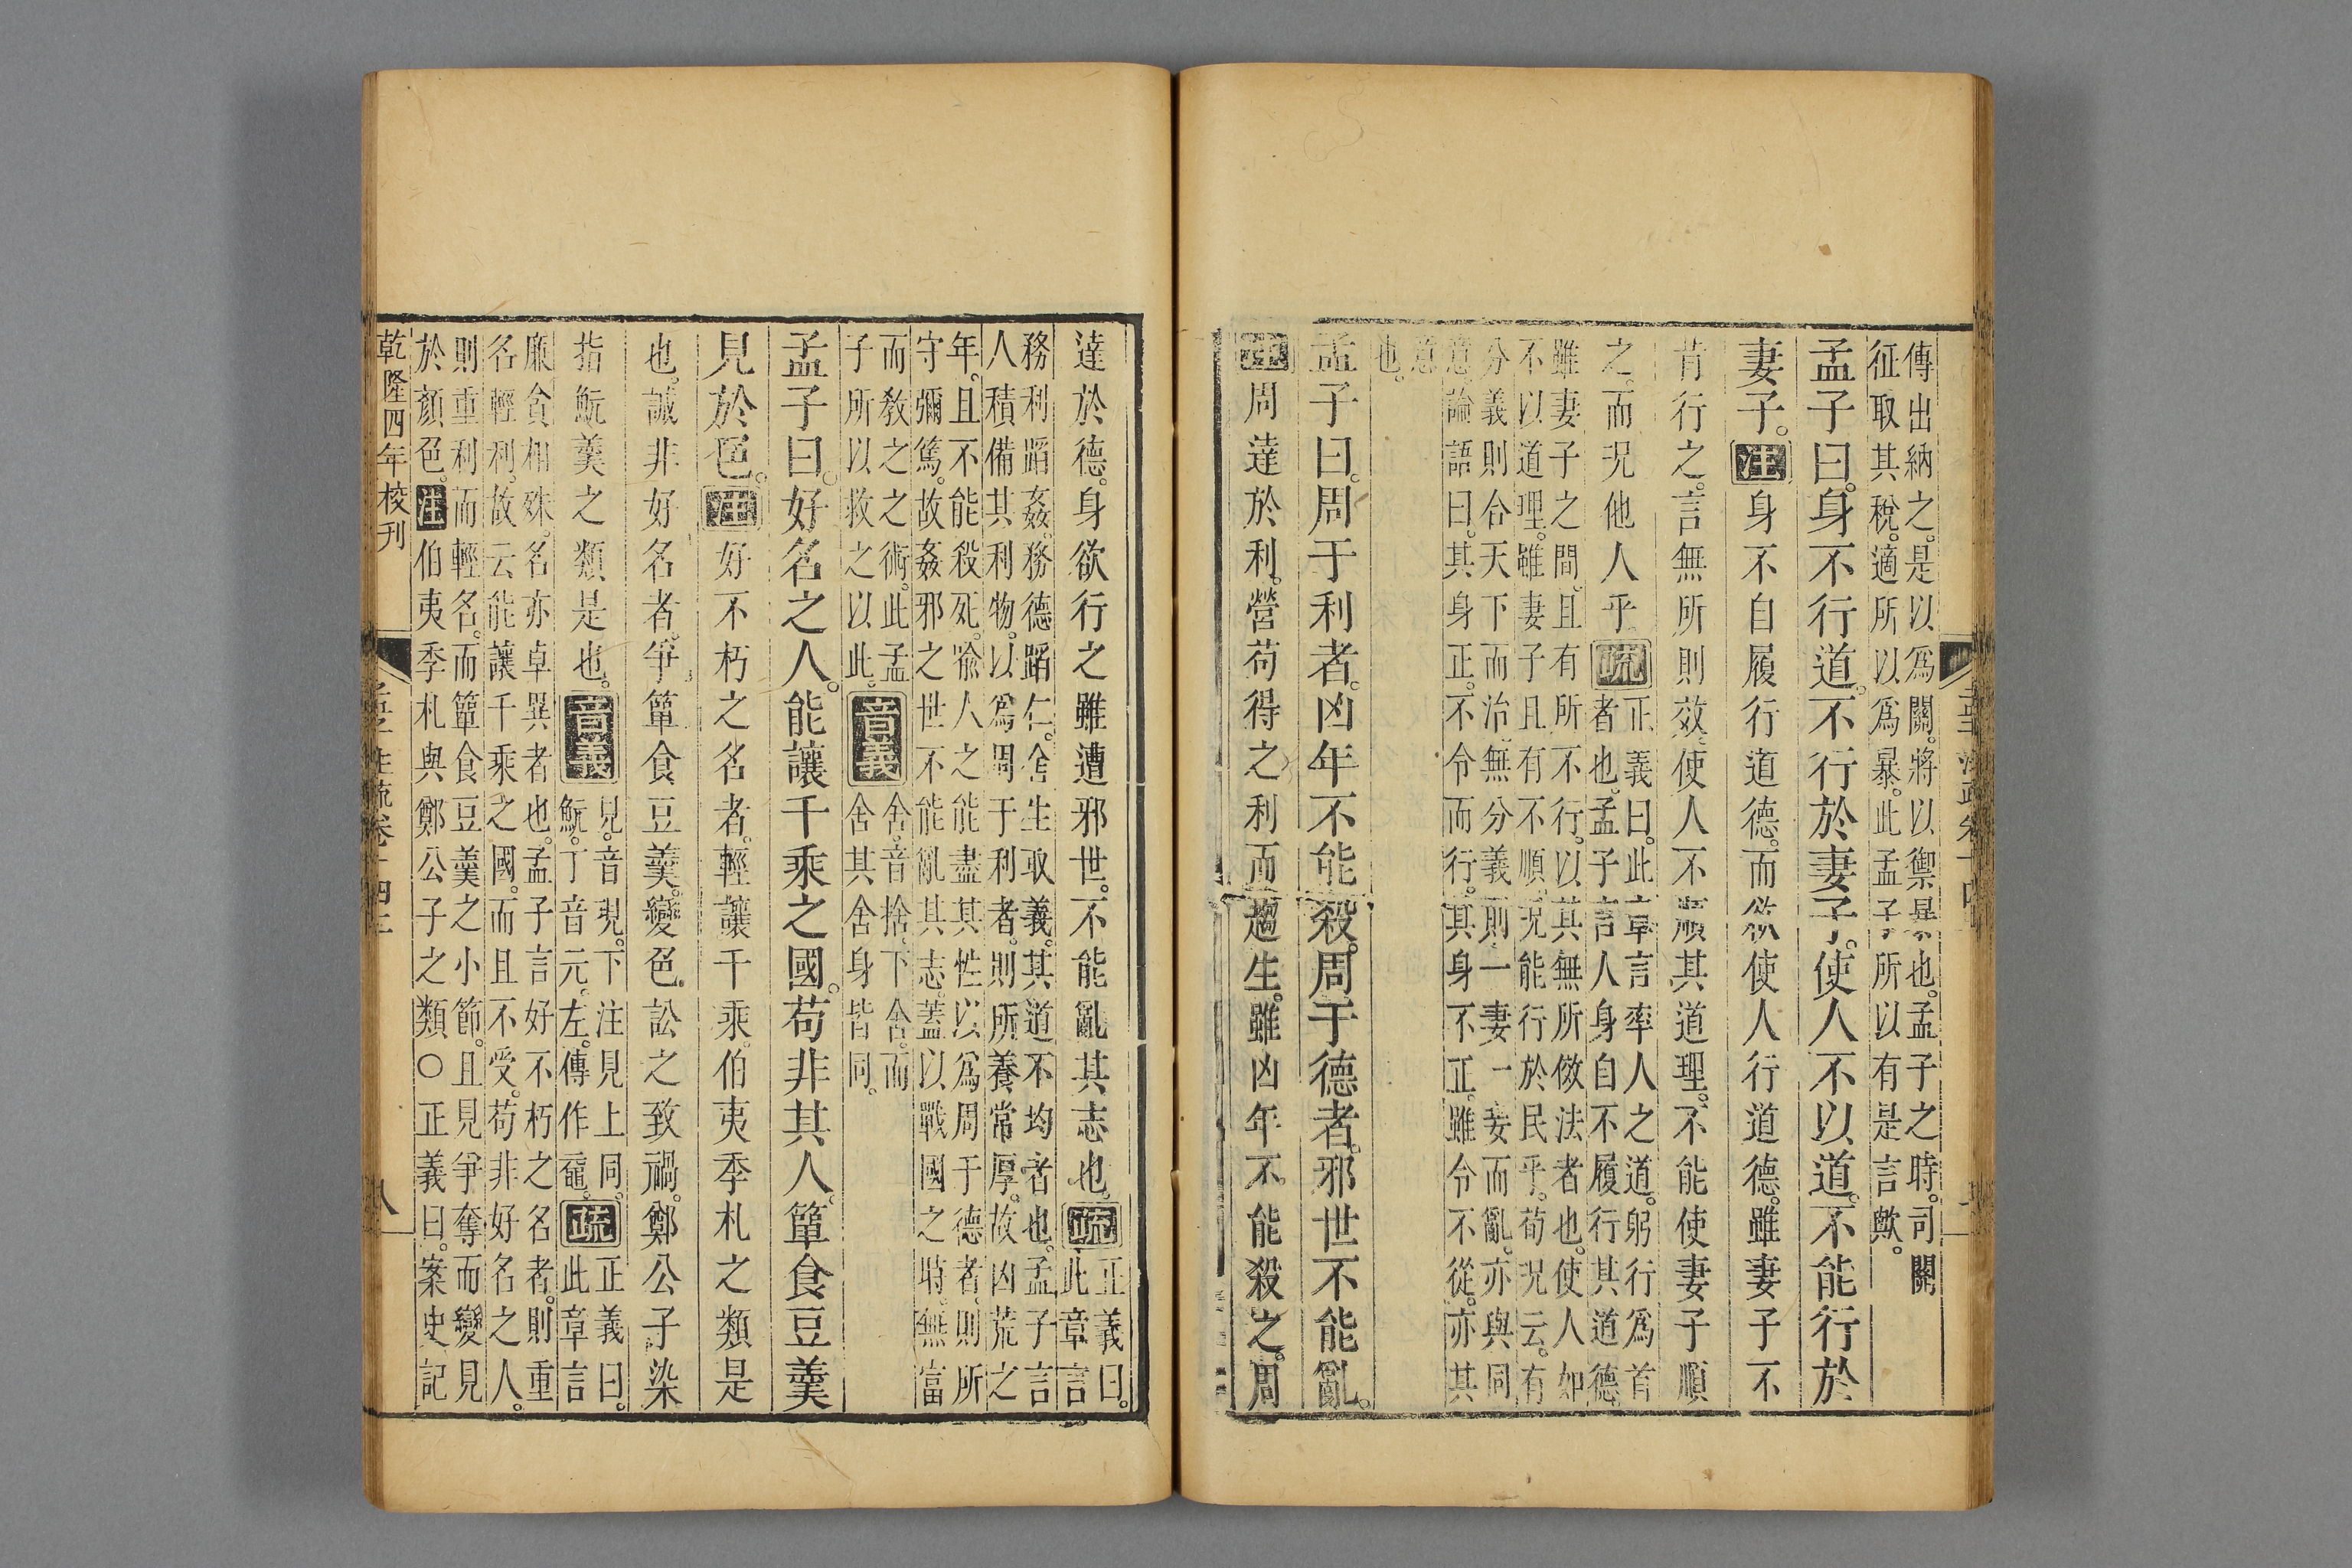 傳出納之。是以爲關。將以禦暴也。孟子之時。司關
征取其稅。適所以爲暴。此孟子所以有是言歟。
孟子曰。身不行道。不行於妻子。使人不以道。不能行於
妻子。注身不自履行道德。而欲使人行道德。雖妻子不
肯行之。言無所則效。使人不順其道理。不能使妻子順
之。而況他人乎疏正義曰。此章言率人之道。躬行爲首
者也。孟子言人身自不履行其道德
雖妻子之間。且有所不行。以其無所倣法者也。使人如
不以道理。雖妻子且有不順。況能行於民乎。荀況云。有
分義則合天下而治。無分義則一妻一妾而亂。亦與同
意。論語曰。其身正。不令而行。其身不正。雖令不從。亦其
意
也。
孟子曰。周于利者。凶年不能殺。周于德者。邪世不能亂。
注周達於利。營苟得之利而趨生。雖凶年不能殺之。周
達於德。身欲行之。雖遭邪世。不能亂其志也。疏正義曰。
此章言
務利蹈姦。務德蹈仁。舍生取義。其道不均者也。孟子言
人積備其利物。以爲周于利者。則所養常厚。故凶荒之
年。且不能殺死。喻人之能盡其性以爲周于德者。則所
守彌篤。故姦邪之世不能亂其志。蓋以戰國之時。無富
而教之之術。此孟
子所以救之以此。音義舍。音捨。下舍。而
舍其舍身皆同。
孟子曰。好名之人。能讓千乘之國。苟非其人。簞食豆羹
見於色。注好不朽之名者。輕讓千乘。伯夷季札之類是
也。誠非好名者。爭簞食豆羹。變色。訟之致禍。鄭公子染
指魭羹之類是也。音義見。音現。下注見上同。
魭。丁音元。左。傳作黿。疏正義曰。
此章言
廉貪相殊。名亦卓異者也。孟子言好不朽之名者。則重
名輕利。故云能讓千乘之國。而且不受。苟非好名之人。
則重利而輕名。而簞食豆羹之小節。且見爭奪而變見
於顏色。注伯夷季札與鄭公子之類○正義曰。案史記
乾隆四年校刊
孟子注疏卷十四上
八